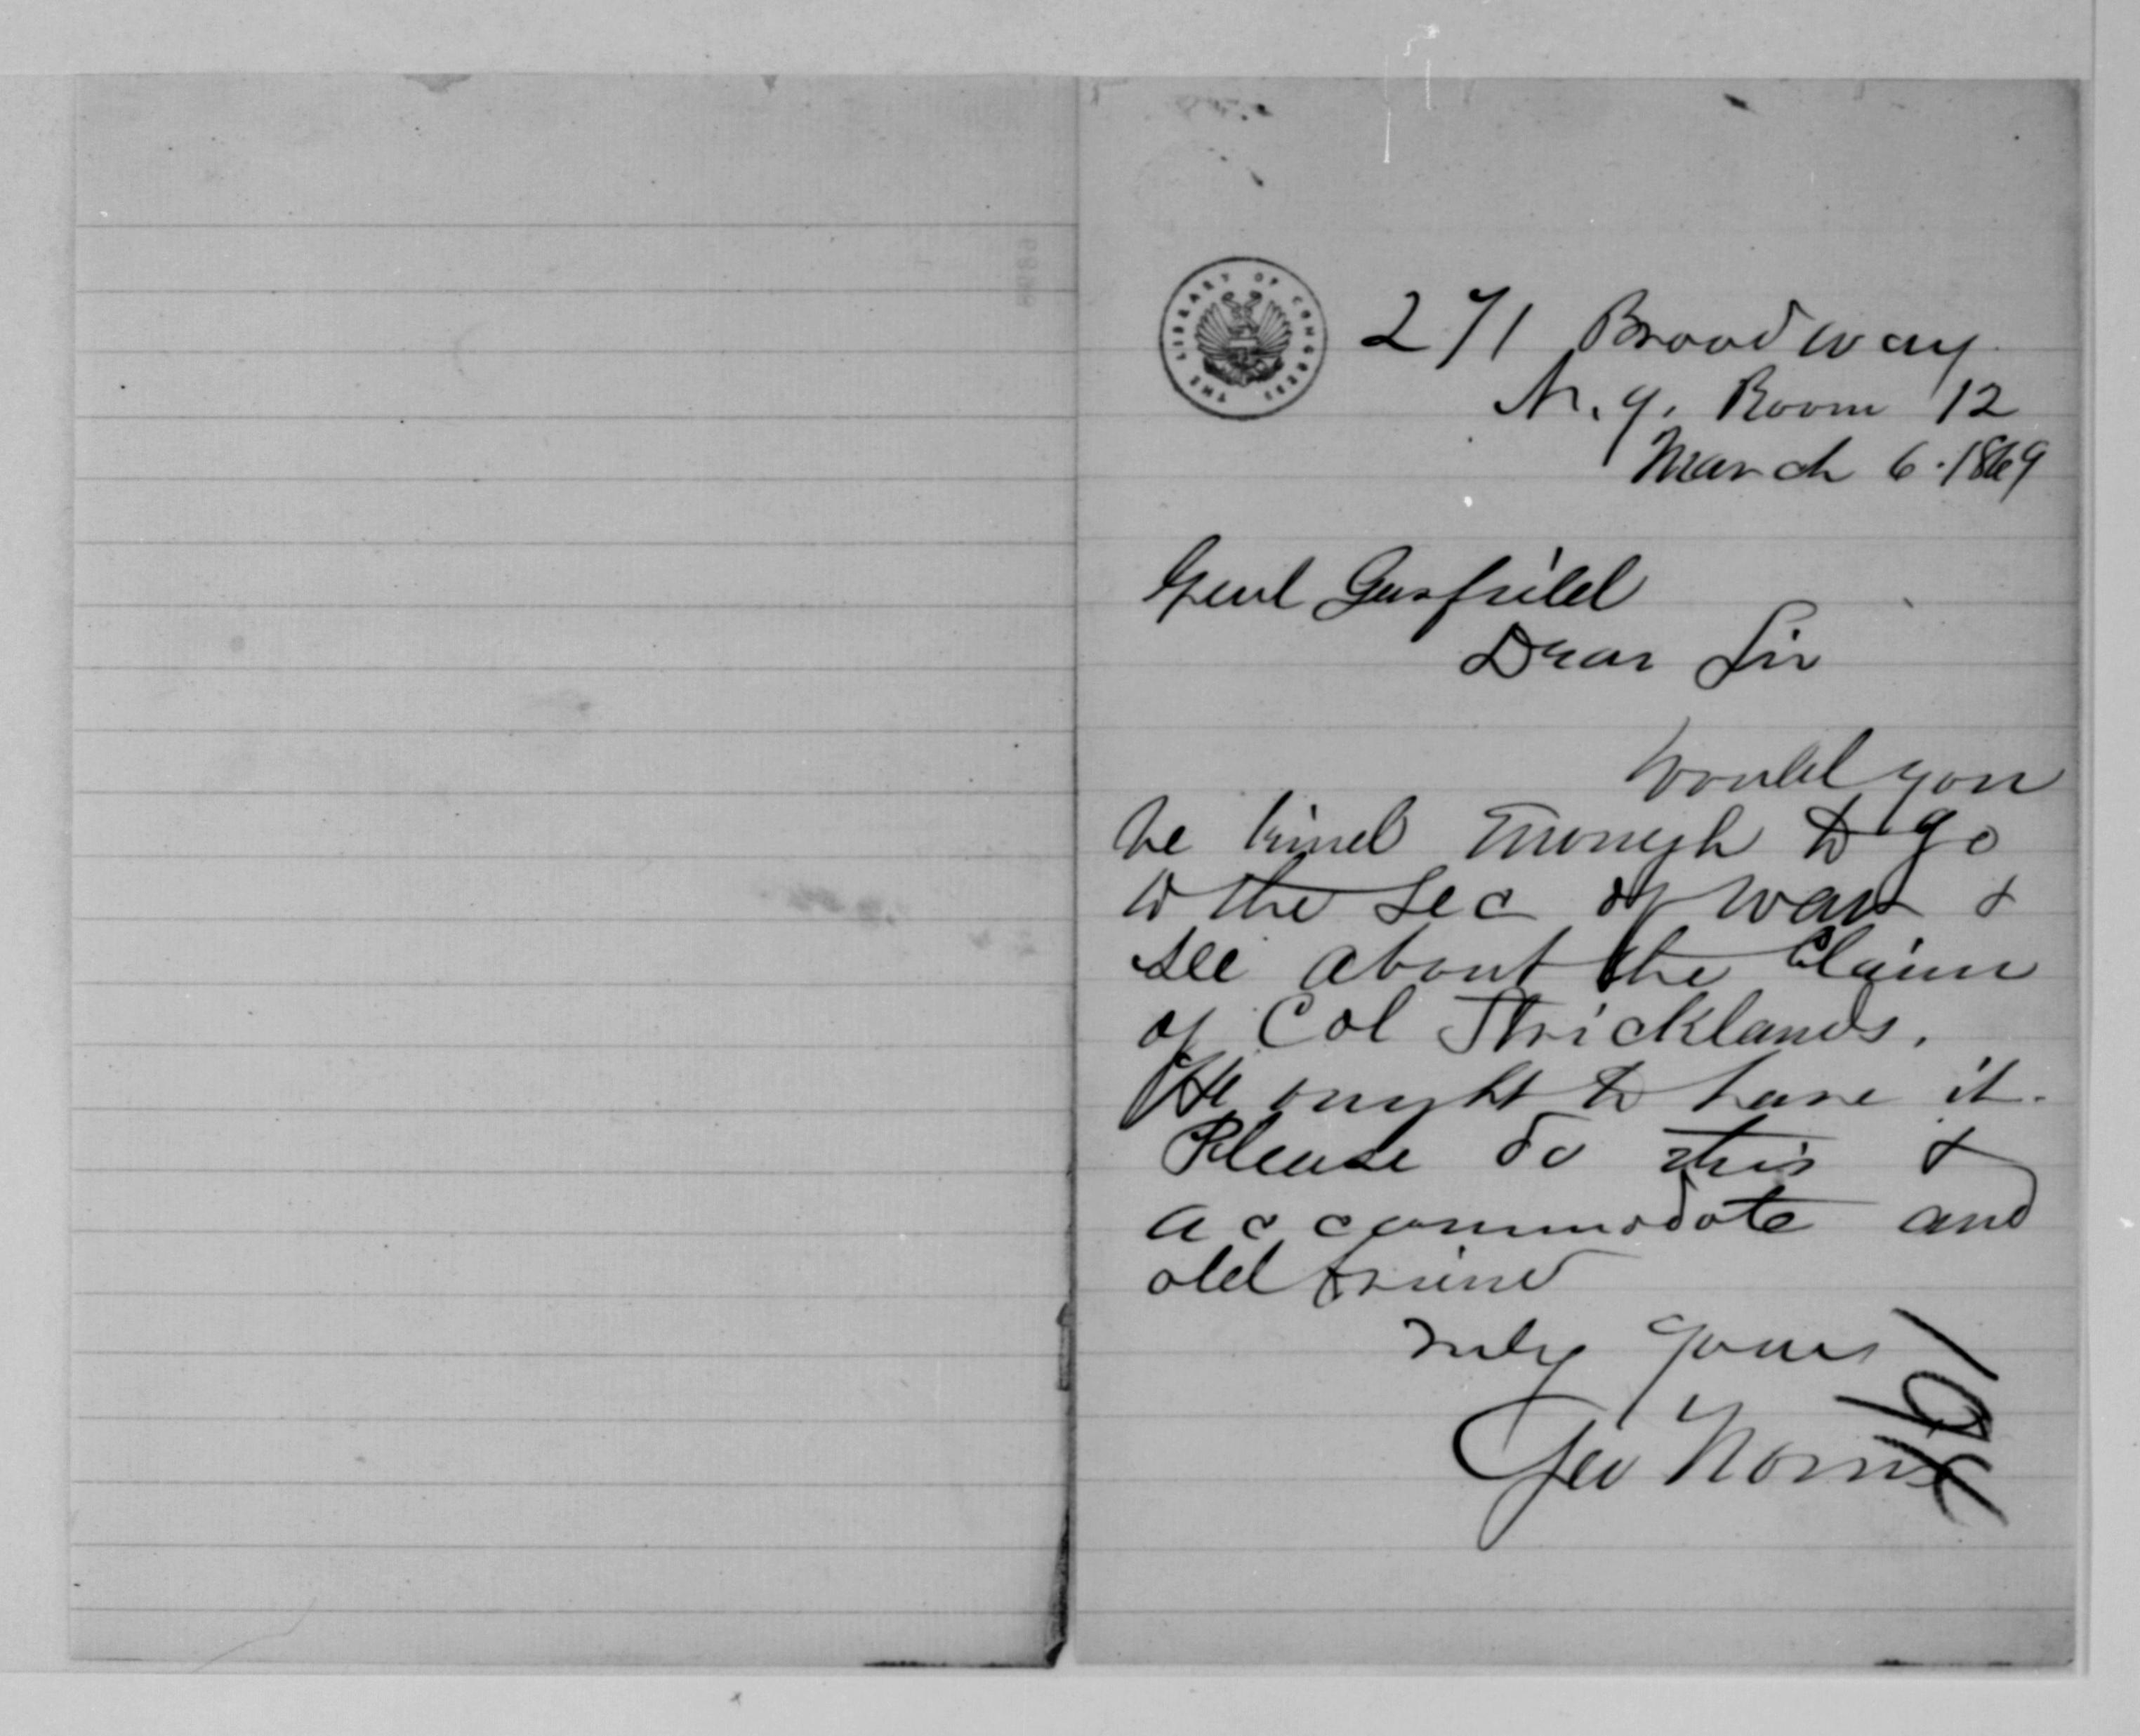 THE LIBRARY OF CONGRESS
271 Broadway
N.Y. Room 12
March 6. 1869
Genl Garfield
Dear Sir
Would you
be kind enough to go
to the Sec of War &
see about the Claim
of Col Stricklands.
He ought to have it.
Please do this &
accommodate and
old friend
Truly yours
Geo Norris